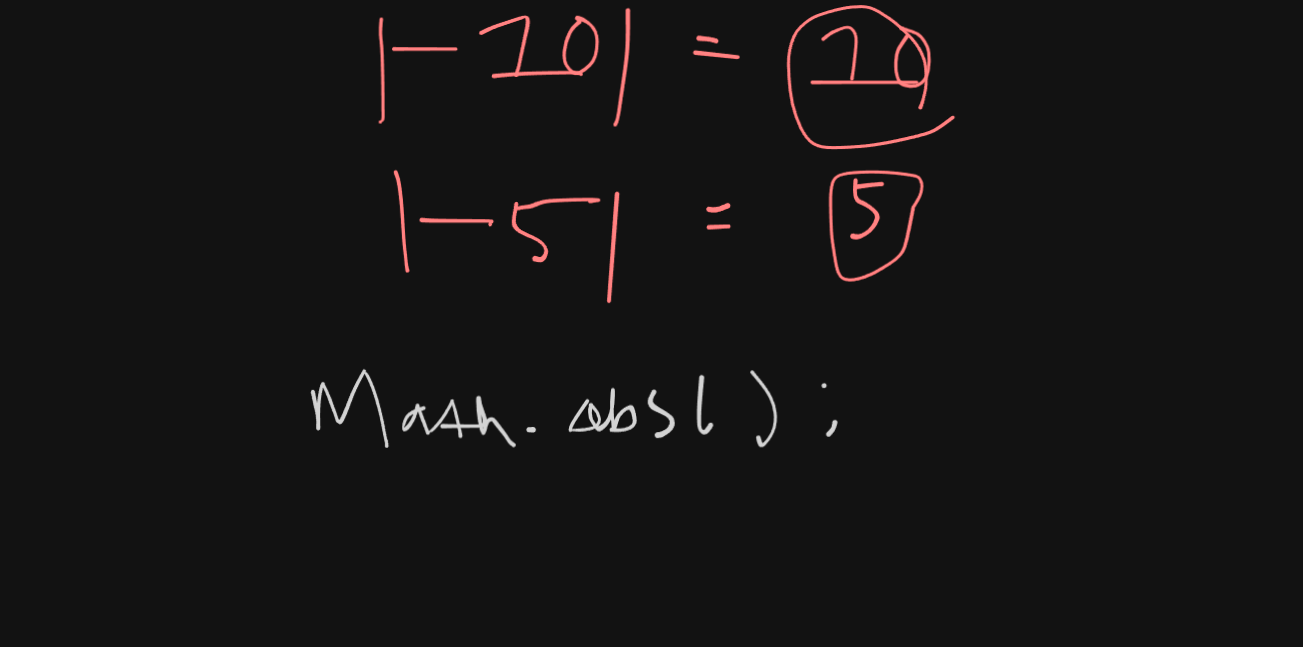 |-10| = 10
|-5| = 5
Math.abs( );